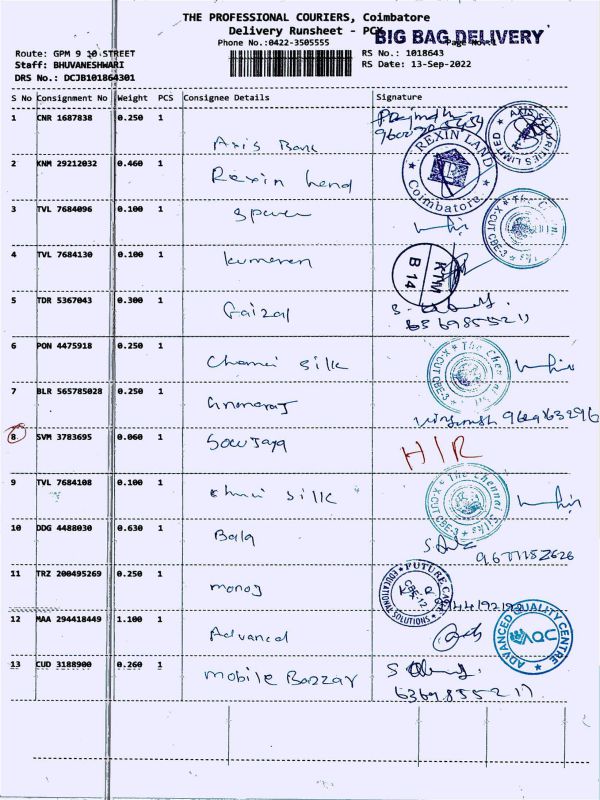 THE PROFESSIONAL COURIERS, Coimbatore
Delivery Runsheet - PCX BIG BAG DELIVERY
Phone No.:0422-3505555
Route: GPM 9 10 STREET RS No.: 1018643
Staff: BHUVANESHWARI RS Date: 13-Sep-2022
DRS No.: DCJB101864301
S No Consignment No Weight PCS Consignee Details Signature
1 CNR 1687838 0.250 1
Axis Bank
AXIS SECURITIES LIMITED
2 KNM 29212032 0.460 1
Rexin Land
REXIN LAND Coimbatore
3 TVL 7684096 0.100 1
X-CUT CBE-3
4 TVL 7684130 0.100 1
kumeren
B 14
5 TDR 5367043 0.300 1
Gaizal
6369855211
6 PON 4475918 0.250 1
Chennai Silk
The Chennai Silks X-CUT CBE-3
7 BLR 565785028 0.250 1
9629163296
8 SVM 3783695 0.060 1
Sowjaya
H/R
9 TVL 7684108 0.100 1
silk
The Chennai Silks X-CUT CBE-3
10 DDG 4488030 0.630 1
Bala
11 TRZ 200495269 0.250 1
monoj
FUTURE EDUCATIONAL SOLUTIONS CBE-12
12 MAA 294418449 1.100 1
Advanced
ADVANCED QUALITY CENTRE AQC
13 CUD 3188900 0.260 1
mobile Bazzar
6369855211